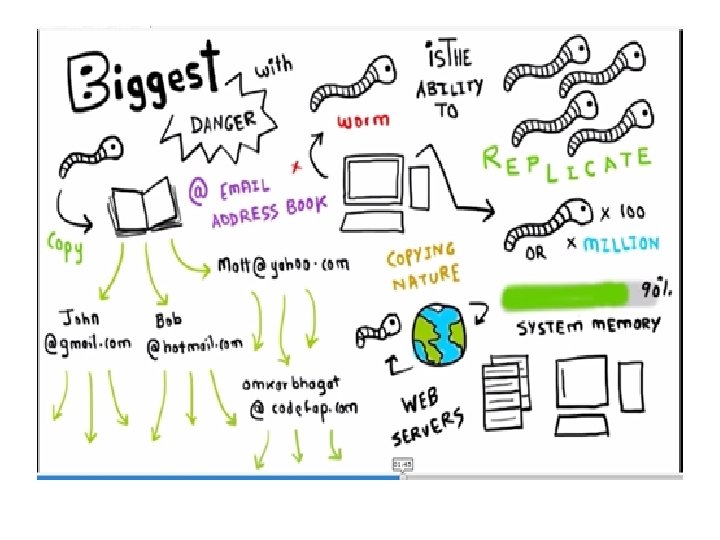 Biggest with
DANGER
worm
is THE
ABILITY
TO
REPLICATE
Copy
@ EMAIL
ADDRESS BOOK
x
x 100
OR x MILLION
COPYING
NATURE
90%
SYSTEM MEMORY
Matt@yahoo.com
John
@gmail.com
Bob
@hotmail.com
omkar bhagat
@ codetap.com
WEB
SERVERS
01:45